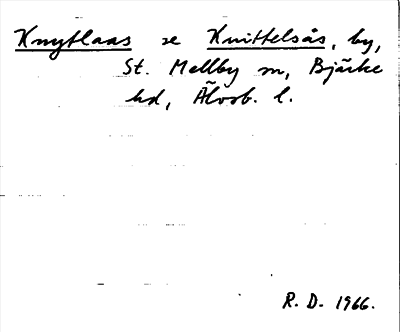 Knytlaas se Knittelsås, by,
St. Mellby sn, Bjärke
hd, Älvsb. l.
R. D. 1966.